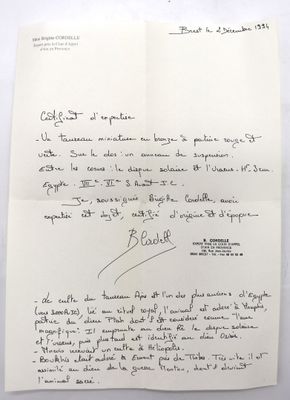 Mme Brigitte CORDELLE
Expert près la Cour d'Appel
d'Aix en Provence
Brest le 2 Décembre 1994
Certificat d'expertise
- Un taureau miniature en bronze à patine rouge et
verte. Sur le dos : un anneau de suspension.
Entre les cornes : le disque solaire et l'Uraeus.
Egypte VIIe - VIe S. Avant J.C.
Je, soussignée, Brigitte Cordelle, avoir
expertisé cet objet, certifié d'origine et d'époque
B Cordelle
B. CORDELLE
EXPERT PRÈS LA COUR D'APPEL
D'AIX EN PROVENCE
29200 BREST
- Le culte du taureau Apis est l'un des plus anciens d'Egypte
lié au rituel royal, l'animal est adoré à Memphis,
patrie du dieu Ptah dont il est considéré comme l'âme
magnifique. Il emprunte au dieu Rê le disque solaire
et l'uraeus, puis plus tard est identifié au dieu Osiris.
- Mnévis recevait un culte à Héliopolis.
- Boukhis était adoré à Erment près de Thèbes. Très vite il est
assimilé au dieu de la guerre Montou, dont il devient
l'animal sacré.